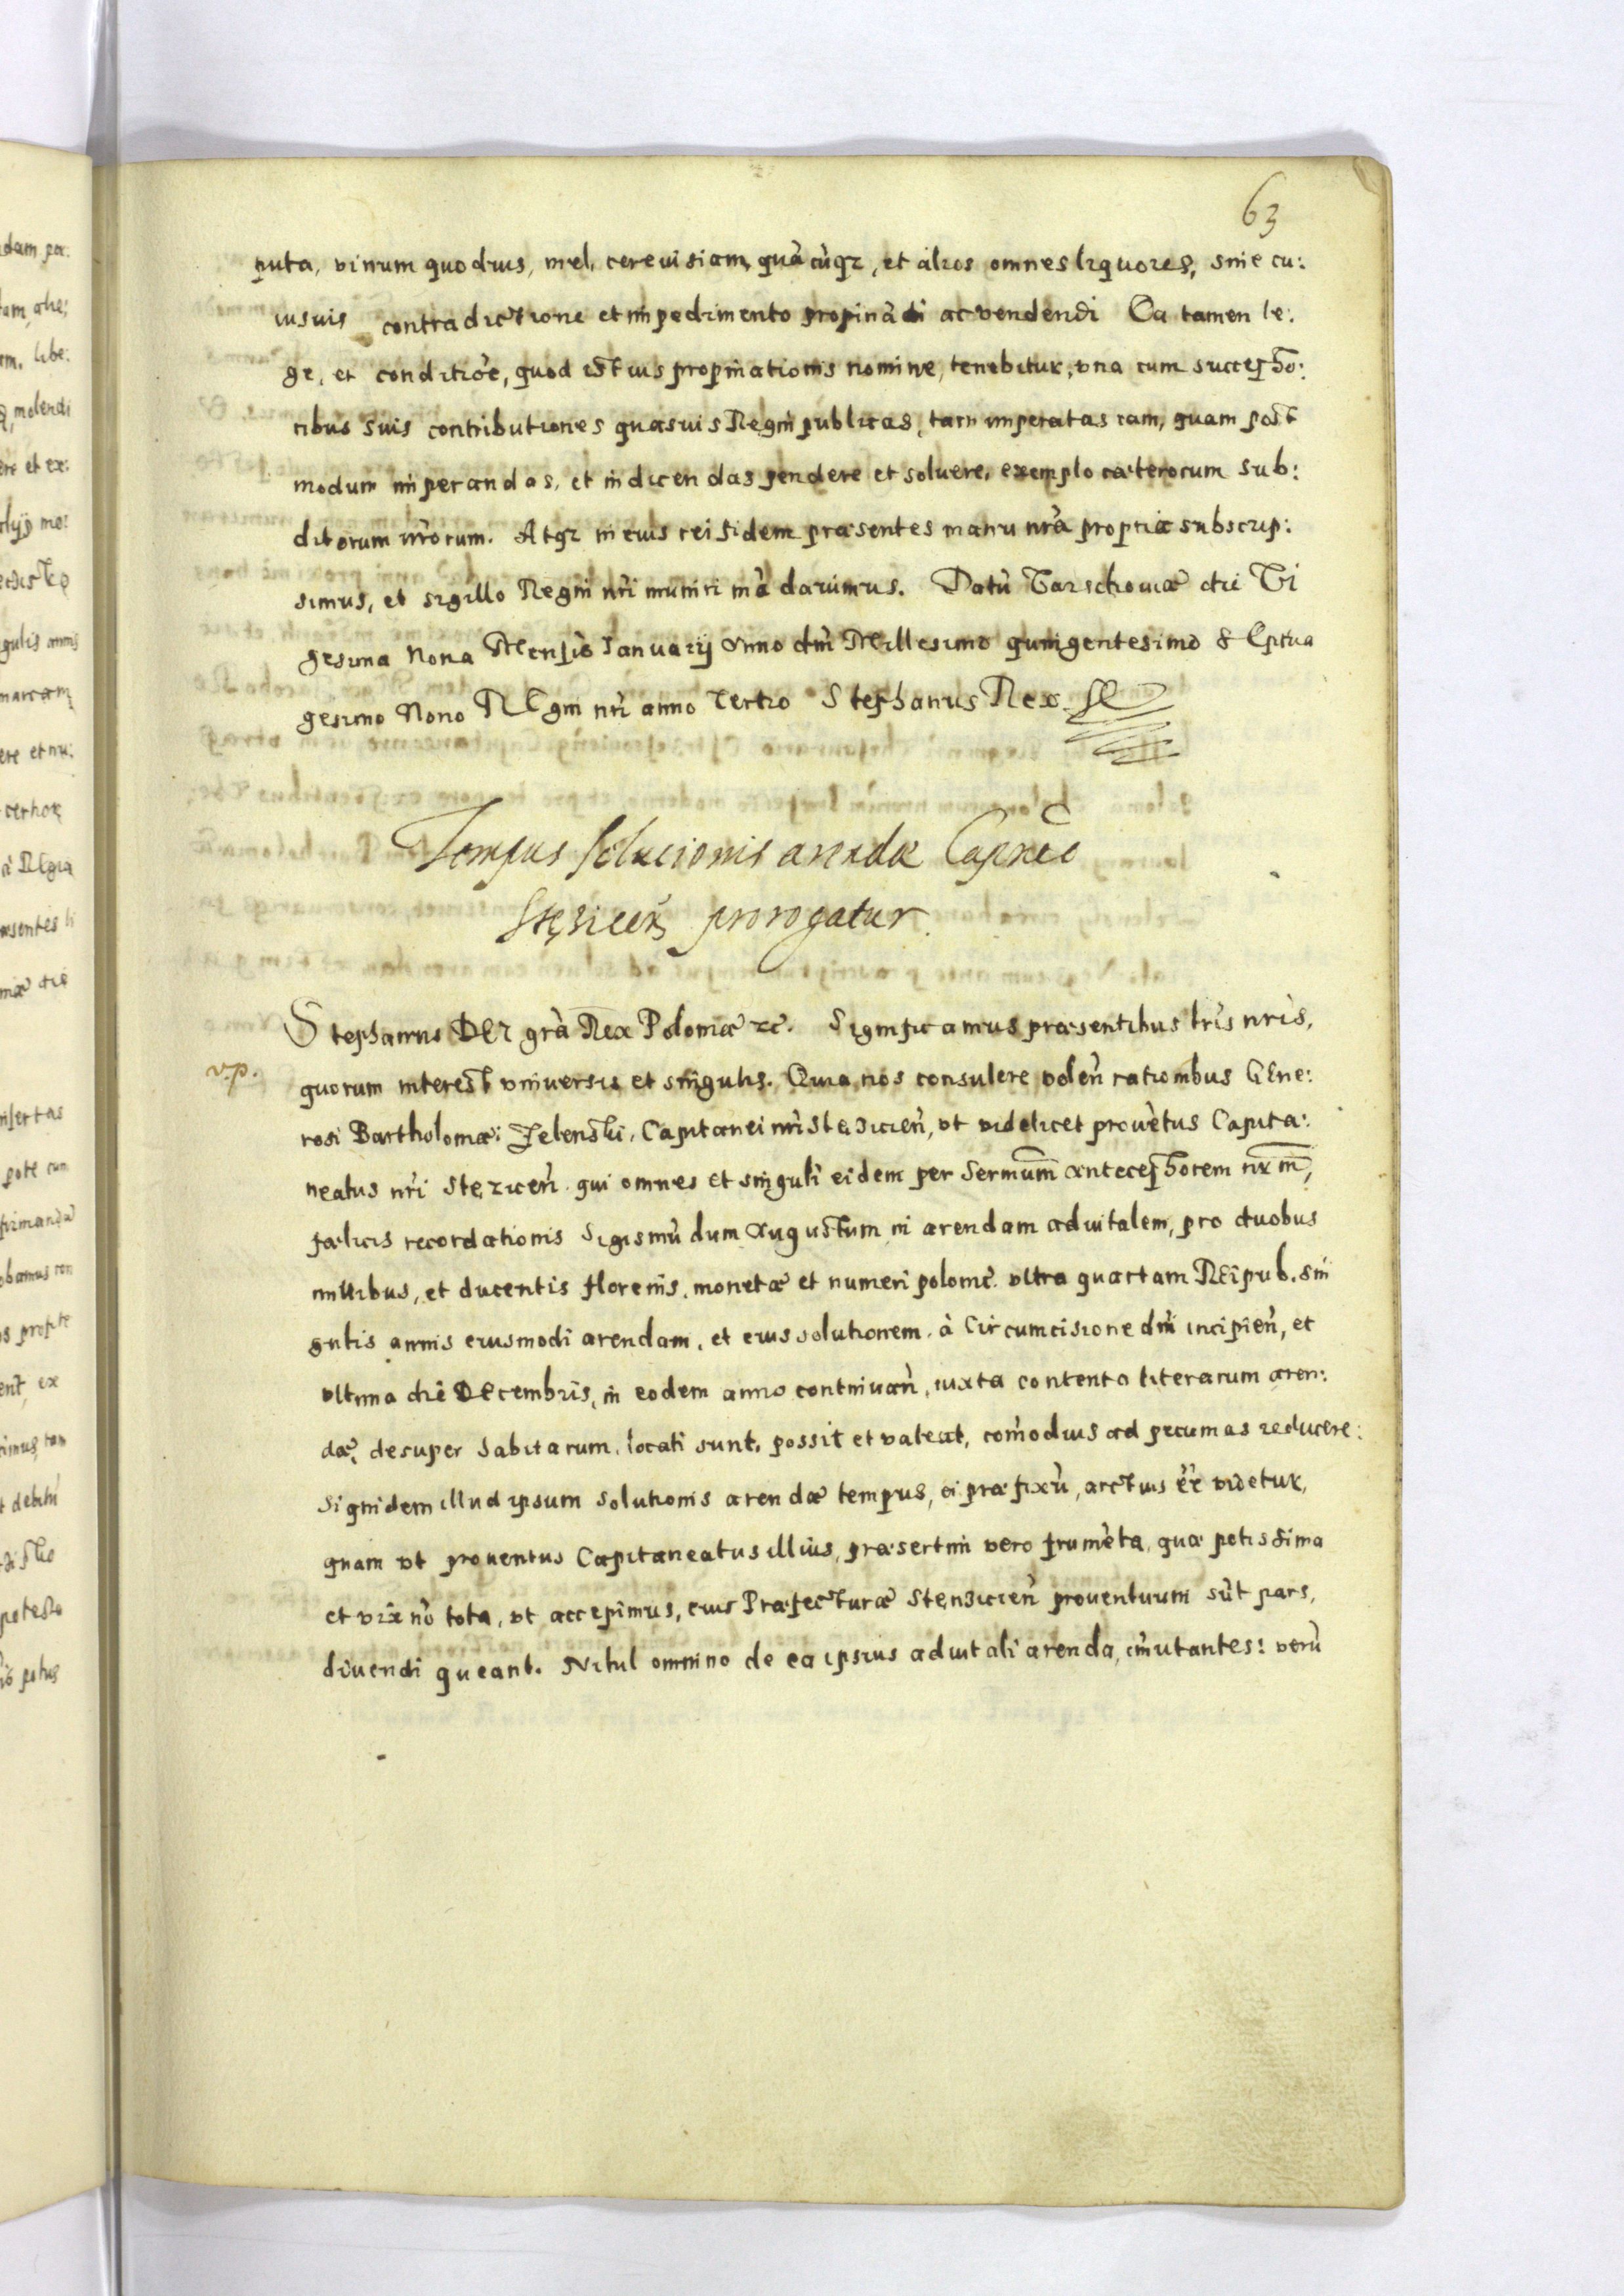 63
puta, vinum quoduis, mel, cereuisiam, quàcùqz, et alios omnes liquores, sine cu:
iusuis contradictione et impedimento propinàdi ac vendendi Ea tamen le:
ge, et conditiõe, quod istius propinationis nomine, tenebitur, vna cum successo:
ribus suis contributiones quasuis Regni publicas, tam imperatas iam, quam post
modum imperandas, et indicendas pendere et soluere, exemplo caeterorum sub:
ditorum nrõrum. Atqz in eius rei fidem praesentes manu nrã propria subscrip:
simus, et sigillo Regni nri muniri mãdauimus. Datũ Varschouiae die Vi
gesima Nona Mensis Ianuarij Anno dni Millesimo quingentesimo SEptua
gesimo Nono REgni nri anno Tertio Stephanus Rex
Tempus solucionis arendae Capnec
Stęzicen prorogatur.
Stephanus DEI grã Rex Poloniae zc. Significamus praesentibus lris nris,
v.p.
quorum interest vniuersis et singulis. Quia nos consulere volen rationibus GEne:
rosi Bartholomaei Zelenski, Capitanei nri Stezicien, vt videlicet prouẽtus Capita:
neatus nri Stezicen qui omnes et singuli eidem per Sermum antecessorem nrm,
faelicis recordationis Sigismũdum Augustum in arendam aduitalem, pro duobus
millibus, et ducentis florenis, monetae et numeri poloniẽ. vltra quartam REipub. sin
gulis annis eiusmodi arendam, et eius solutionem, à Circumcisione dni incipien, et
vltima die DEcembris, in eodem anno continuan, iuxta contenta literarum aren:
dae, desuper habitarum, locati sunt, possit et valeat, com̃odius ad pecunias reducere:
Siquidem illud ipsum solutionis arendae tempus, ei praefixũ, arctius eẽ videtur,
quam vt prouentus Capitaneatus illius, praesertim vero frumẽta, quae potissima
et vix nõ tota, vt accepimus, eius Praefecturae Stenzicien prouentuum sũt pars,
diuendi queant. Nihil omnino de ea ipsius aduitali arenda, im̃utantes: verũ